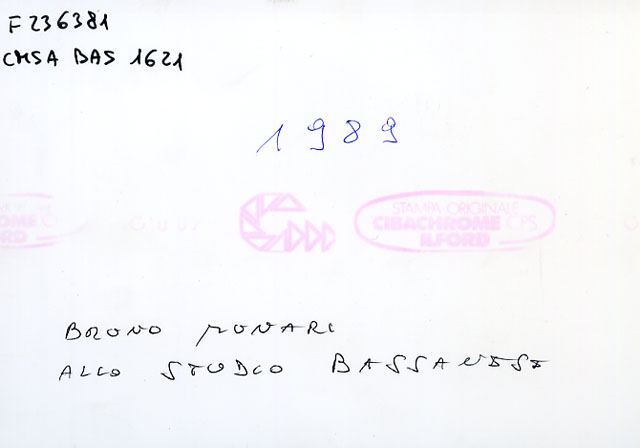 F236381
CMSA BAS 1621
1989
STAMPA ORIGINALE
CIBACHROME CPS
ILFORD
BRUNO MUNARI
ALLO STUDIO BASSANESE